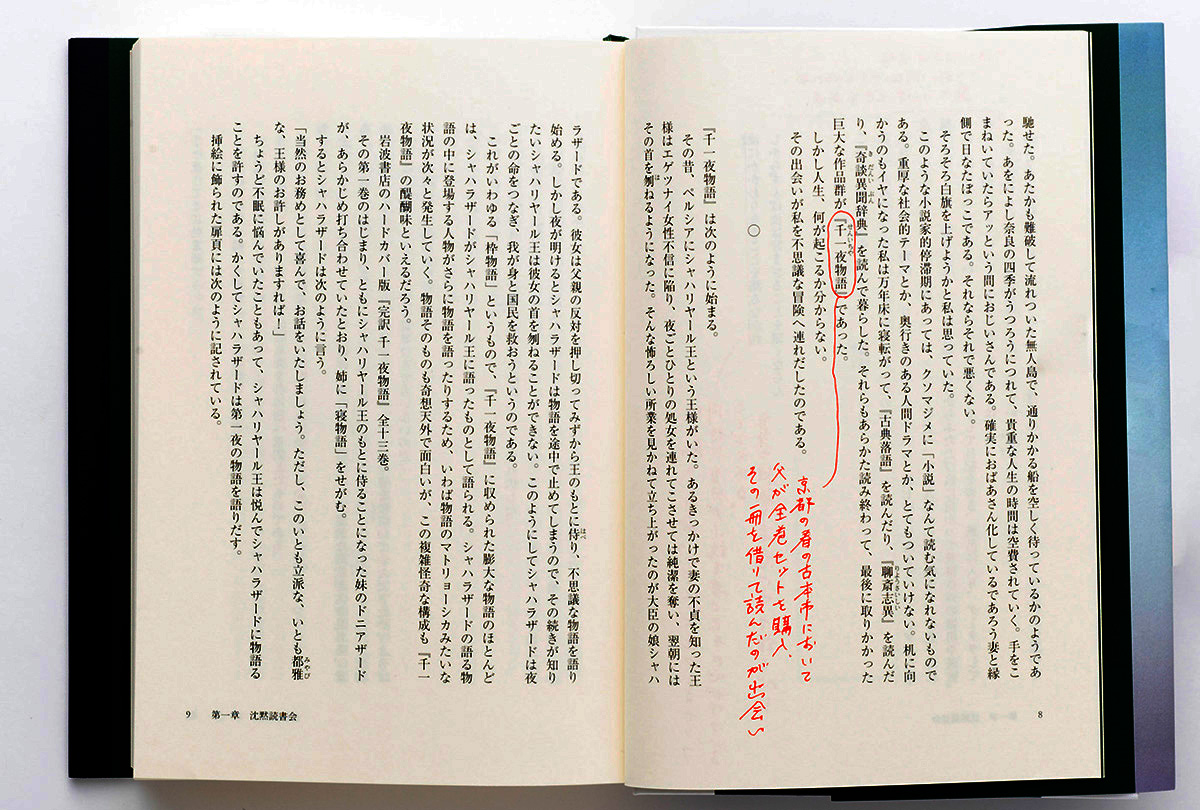 馳せた。あたかも難破して流れついた無人島で、通りかかる船を空しく待っているかのようであ
った。あをによし奈良の四季がうつろうにつれて、貴重な人生の時間は空費されていく。手をこ
まねいていたらアッという間におじいさんである。確実におばあさん化しているであろう妻と縁
側で日なたぼっこである。それならそれで悪くない。
そろそろ白旗を上げようかと私は思っていた。
このような小説家的停滞期にあっては、クソマジメに「小説」なんて読む気になれないもので
ある。重厚な社会的テーマとか、奥行きのある人間ドラマとか、とてもついていけない。机に向
かうのもイヤになった私は万年床に寝転がって、『古典落語』を読んだり、『聊斎志異』を読んだ
り、『奇談異聞辞典』を読んで暮らした。それらもあらかた読み終わって、最後に取りかかった
巨大な作品群が『千一夜物語』であった。
しかし人生、何が起こるか分からない。
その出会いが私を不思議な冒険へ連れだしたのである。
京都の春の古本市において
父が全巻セットを購入、
その一冊を借りて読んだのが出会い
○
『千一夜物語』は次のように始まる。
その昔、ペルシアにシャハリヤール王という王様がいた。あるきっかけで妻の不貞を知った王
様はエゲツナイ女性不信に陥り、夜ごとひとりの処女を連れてこさせては純潔を奪い、翌朝には
その首を刎ねるようになった。そんな怖ろしい所業を見かねて立ち上がったのが大臣の娘シャハ
8
ラザードである。彼女は父親の反対を押し切ってみずから王のもとに侍り、不思議な物語を語り
始める。しかし夜が明けるとシャハラザードは物語を途中で止めてしまうので、その続きが知り
たいシャハリヤール王は彼女の首を刎ねることができない。このようにしてシャハラザードは夜
ごとの命をつなぎ、我が身と国民を救おうというのである。
これがいわゆる「枠物語」というもので、『千一夜物語』に収められた膨大な物語のほとんど
は、シャハラザードがシャハリヤール王に語ったものとして語られる。シャハラザードの語る物
語の中に登場する人物がさらに物語を語ったりするため、いわば物語のマトリョーシカみたいな
状況が次々と発生していく。物語そのものも奇想天外で面白いが、この複雑怪奇な構成も『千一
夜物語』の醍醐味といえるだろう。
岩波書店のハードカバー版『完訳 千一夜物語』全十三巻。
その第一巻のはじまり、ともにシャハリヤール王のもとに侍ることになった妹のドニアザード
が、あらかじめ打ち合わせていたとおり、姉に「寝物語」をせがむ。
するとシャハラザードは次のように言う。
「当然のお務めとして喜んで、お話をいたしましょう。ただし、このいとも立派な、いとも都雅
な、王様のお許しがありますれば！」
ちょうど不眠に悩んでいたこともあって、シャハリヤール王は悦んでシャハラザードに物語る
ことを許すのである。かくしてシャハラザードは第一夜の物語を語りだす。
挿絵に飾られた扉頁には次のように記されている。
9 第一章 沈黙読書会